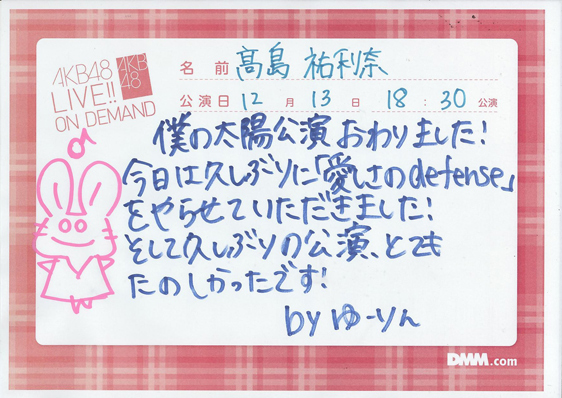 AKB48
LIVE!!
ON DEMAND
AKB
48
名前 髙島 祐利奈
公演日 12月 13日 18:30公演
僕の太陽公演おわりました!
今日は久しぶりに「愛しさのdefense」
をやらせていただきました!
そして久しぶりの公演、とても
たのしかったです!
by ゆーりん
DMM.com